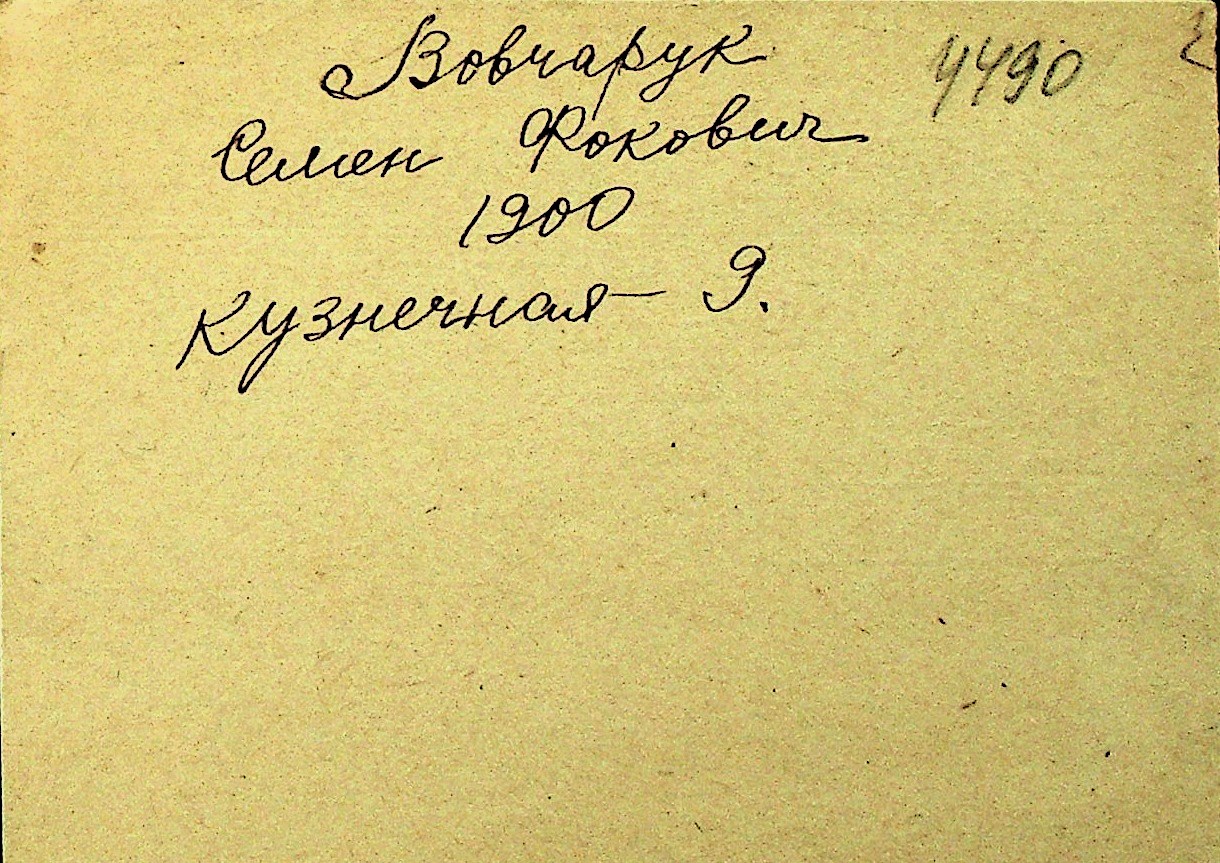 Вовчарук 4490
Семен Фокович
1900
Кузнечная - 9.